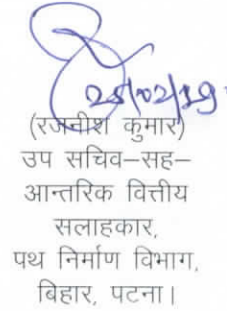 25/02/19
(रजनीश कुमार)
उप सचिव–सह–
आन्तरिक वित्तीय
सलाहकार,
पथ निर्माण विभाग,
बिहार, पटना।